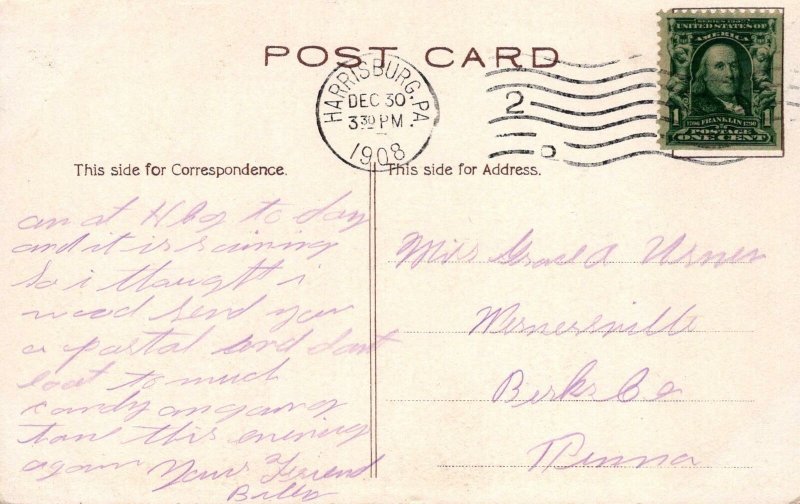 POST CARD
HARRISBURG, PA.
DEC 30
3 30 PM
1908
2
SERIES 1902
UNITED STATES OF
AMERICA
1 FRANKLIN 1
POSTAGE
ONE CENT
This side for Correspondence.
This side for Address.
am at H Bg to day
and it is raining
So i thought i
wood send you
a postal and dont
eat to much
candy am going
this evening
again Yours Friend
Miss
Wernersville
Berks Co
Penna